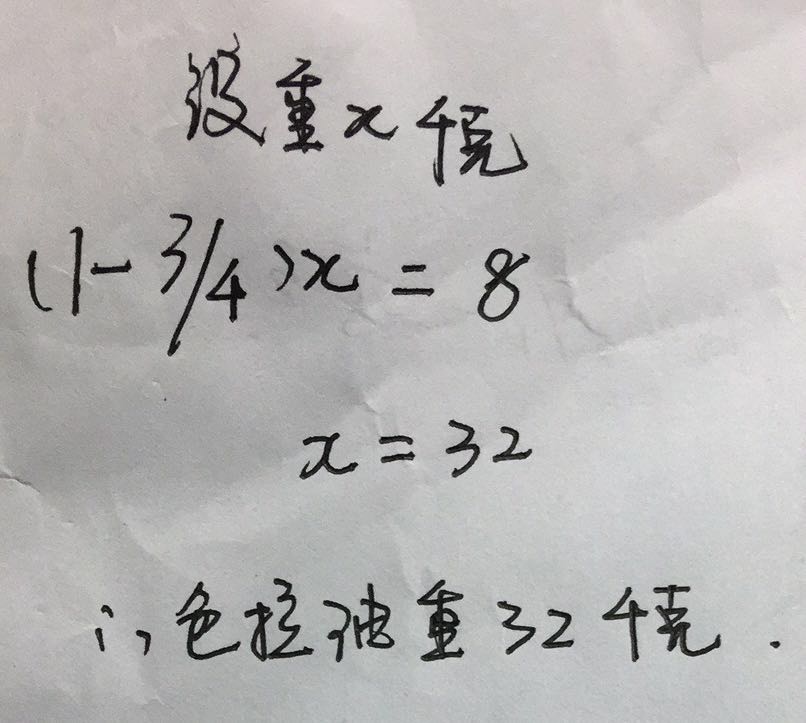 设重x千克
(1-3/4)x=8
x=32
∴色拉油重32千克.